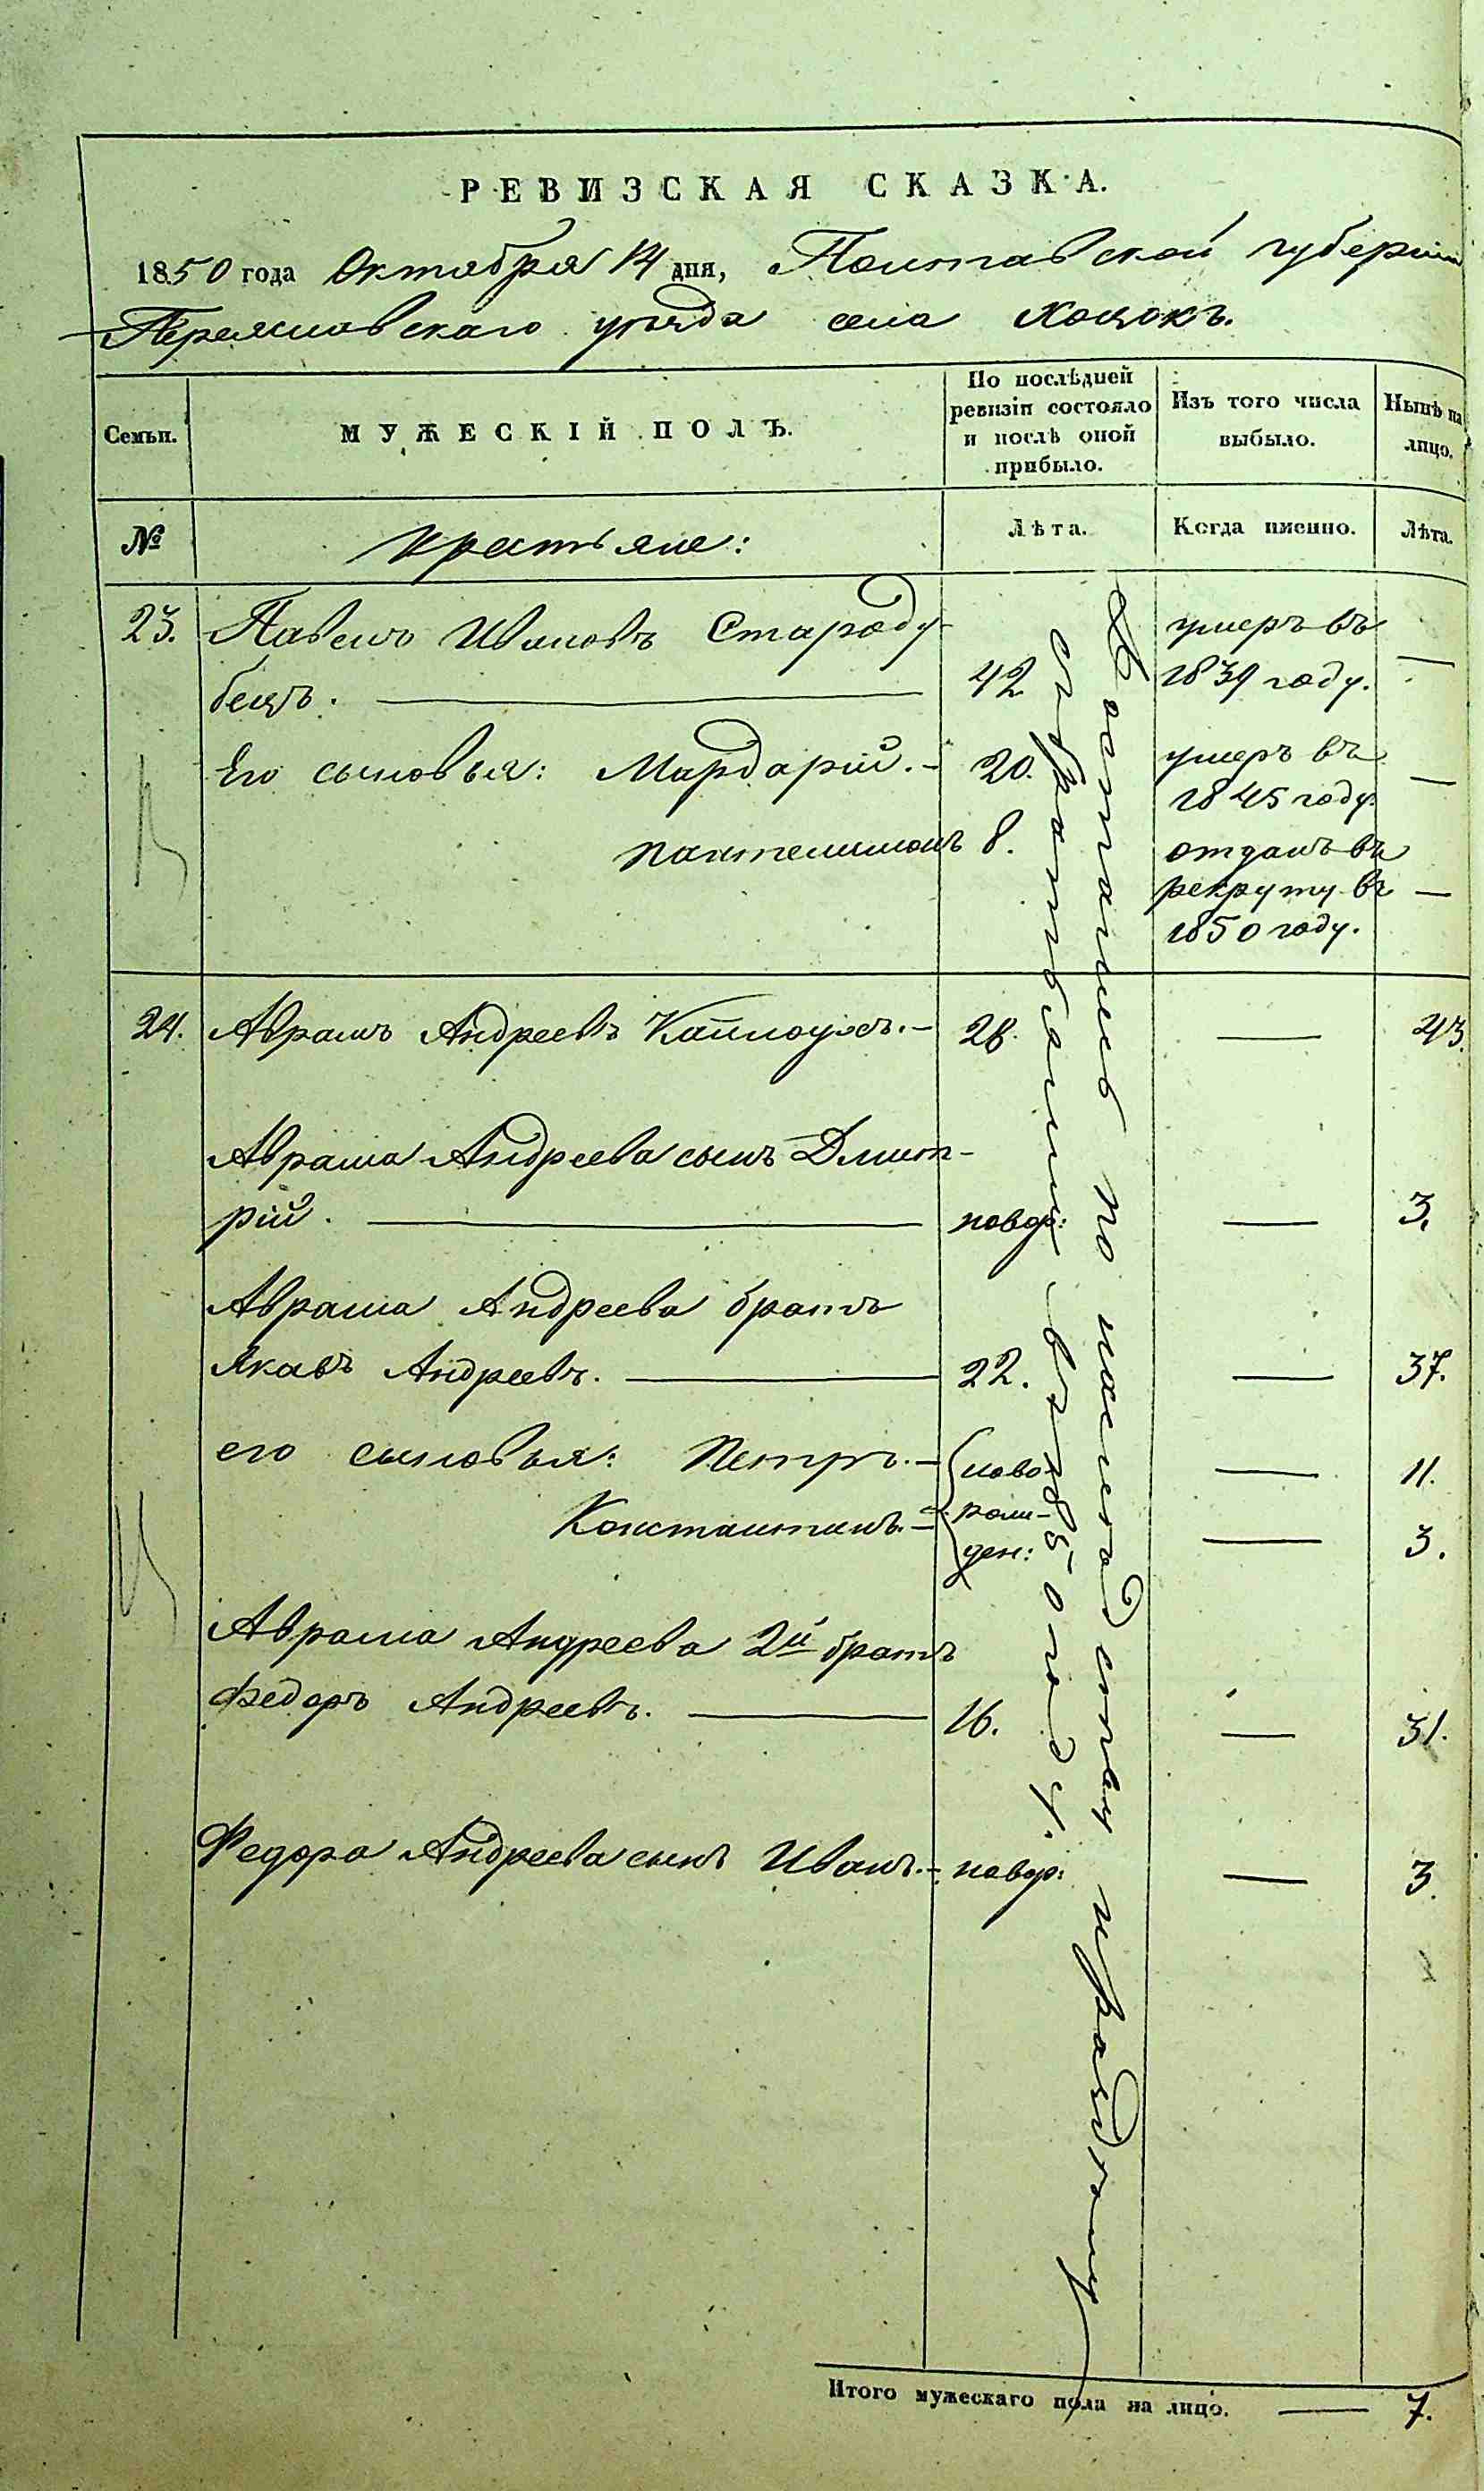 РЕВИЗСКАЯ СКАЗКА.
1850 года Октября 14 дня, Полтавской губернии
Переяславскаго уезда села Хоцокъ.
Семьи.
МУЖЕСКІЙ ПОЛЪ.
По послѣдней
ревизіи состояло
и послѣ оной
прибыло.
Изъ того числа
выбыло.
Нынѣ на
лицо.
№
крестьяне:
Лѣта.
Когда именно.
Лѣта.
23. Павелъ Ивановъ Староду-
бецъ. 42 умеръ въ 1839 году. —
Его сыновья: Мардарій. — 20. умеръ въ
1845 году. —
Пантелимонъ 8. отданъ въ
рекруту въ —
1850 году.
24. Аврамъ Андреевъ — 28. — 43.
Аврама Андреева сынъ Дмит-
рій. — новор: — 3.
Аврама Андреева братъ
Яковъ Андреевъ. — 22. — 37.
его сыновья: Петръ. — ново- — 11.
Константинъ. — рож-
ден: — 3.
Аврама Андреева 2й братъ
Федоръ Андреевъ. — 16. — 31.
Федора Андреева сынъ Иванъ. — новор: — 3.
Достались по наследству
братьями въ 1850 году.
Итого мужескаго пола на лицо. — 7.